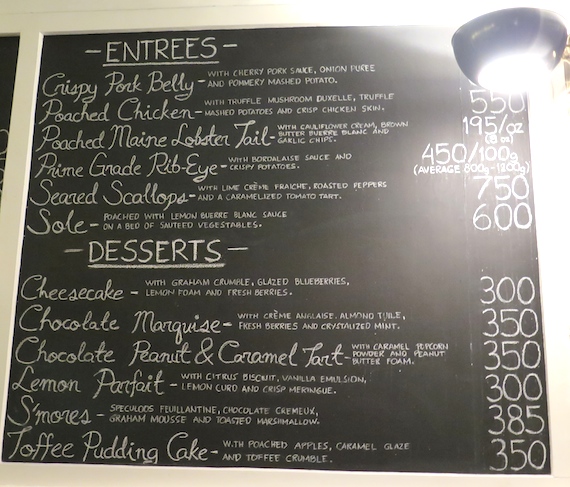 - ENTREES -
Crispy Pork Belly - WITH CHERRY PORK SAUCE, ONION PUREE
AND POMMERY MASHED POTATO.
Poached Chicken - WITH TRUFFLE MUSHROOM DUXELLE, TRUFFLE
MASHED POTATOES AND CRISP CHICKEN SKIN. 550
Poached Maine Lobster Tail - WITH CAULIFLOWER CREAM, BROWN
BUTTER BUERRE BLANC AND
GARLIC CHIPS. 195/oz
(8 oz)
Prime Grade Rib-Eye - WITH BORDALAISE SAUCE AND
CRISPY POTATOES. 450/100g
(AVERAGE 800g-1200g)
Seared Scallops - WITH LIME CRÈME FRAICHE, ROASTED PEPPERS
AND A CARAMELIZED TOMATO TART. 750
Sole - POACHED WITH LEMON BUERRE BLANC SAUCE
ON A BED OF SAUTEED VEGESTABLES. 600
- DESSERTS -
Cheesecake - WITH GRAHAM CRUMBLE, GLAZED BLUEBERRIES,
LEMON FOAM AND FRESH BERRIES. 300
Chocolate Marquise - WITH CRÈME ANALAISE, ALMOND TUILE,
FRESH BERRIES AND CRYSTALIZED MINT. 350
Chocolate Peanut & Caramel Tart - WITH CARAMEL POPCORN
POWDER AND PEANUT
BUTTER FOAM. 350
Lemon Parfait - WITH CITRUS BISCUIT, VANILLA EMULSION,
LEMON CURD AND CRISP MERINGUE. 300
S'mores - SPECULOOS FEUILLANTINE, CHOCOLATE CREMEUX,
GRAHAM MOUSSE AND TOASTED MARSHMALLOW. 385
Toffee Pudding Cake - WITH POACHED APPLES, CARAMEL GLAZE
AND TOFFEE CRUMBLE. 350